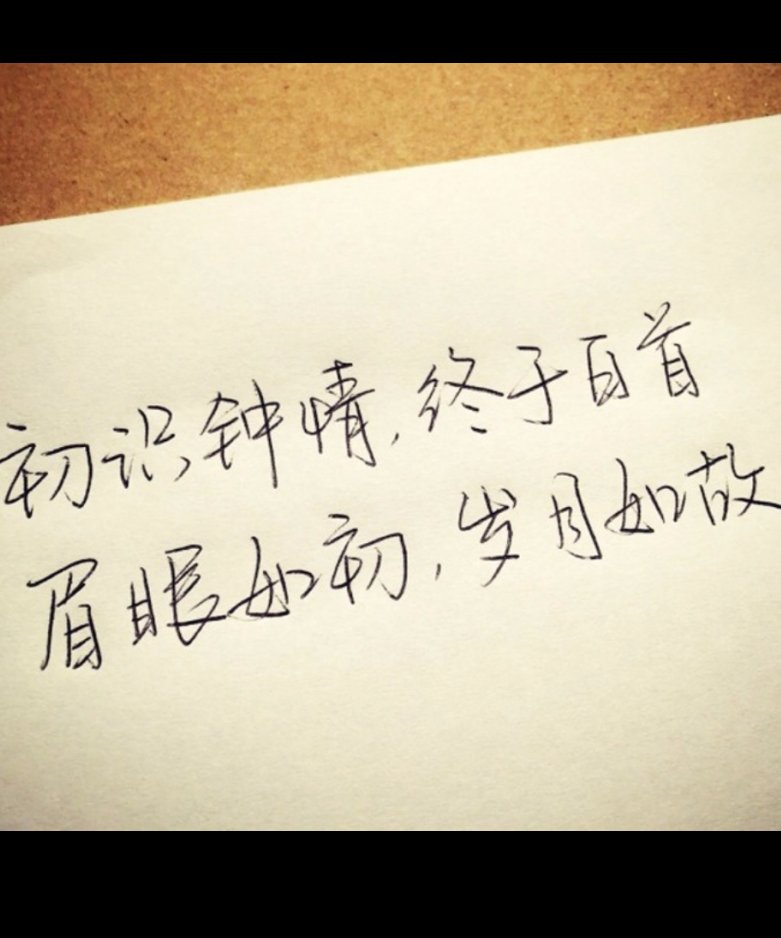 初识钟情,终于白首
眉眼如初,岁月如故